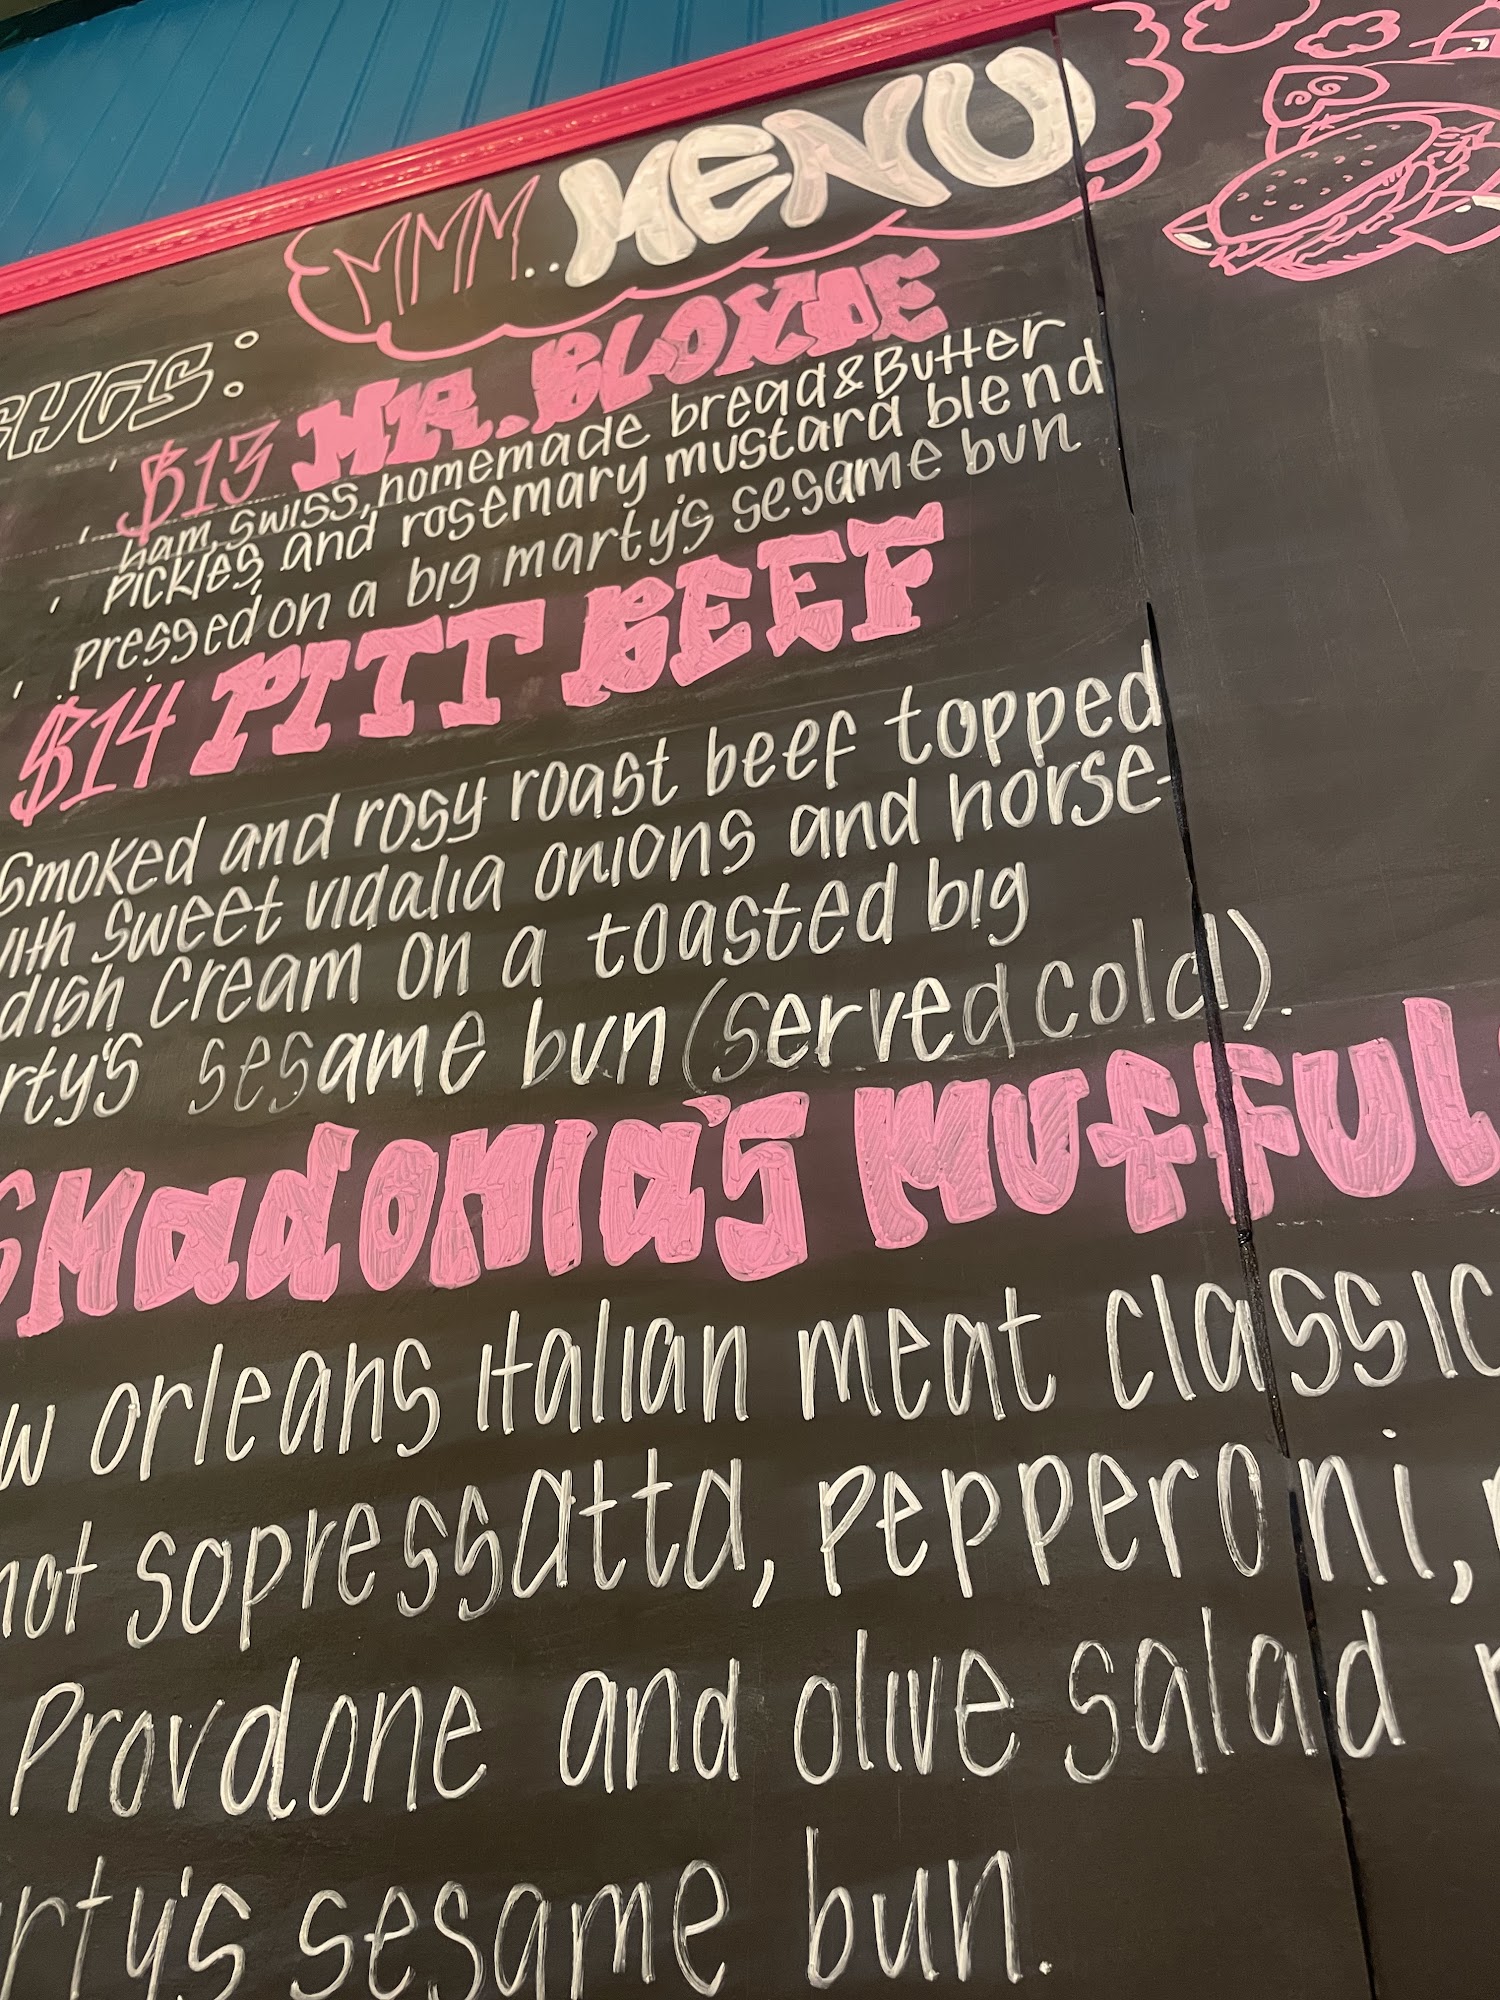 MMM.. MENU
$13 MR. BLONDE
ham, swiss, homemade bread & Butter
pickles, and rosemary mustard blend
pressed on a big marty's sesame bun
$14 PITT BEEF
smoked and rosy roast beef topped
with sweet vidalia onions and horse-
dish cream on a toasted big
rty's sesame bun (served cold).
Madonia's Mufful
w orleans italian meat classic
hot sopressatta, pepperoni,
Provolone and olive salad
rty's sesame bun.